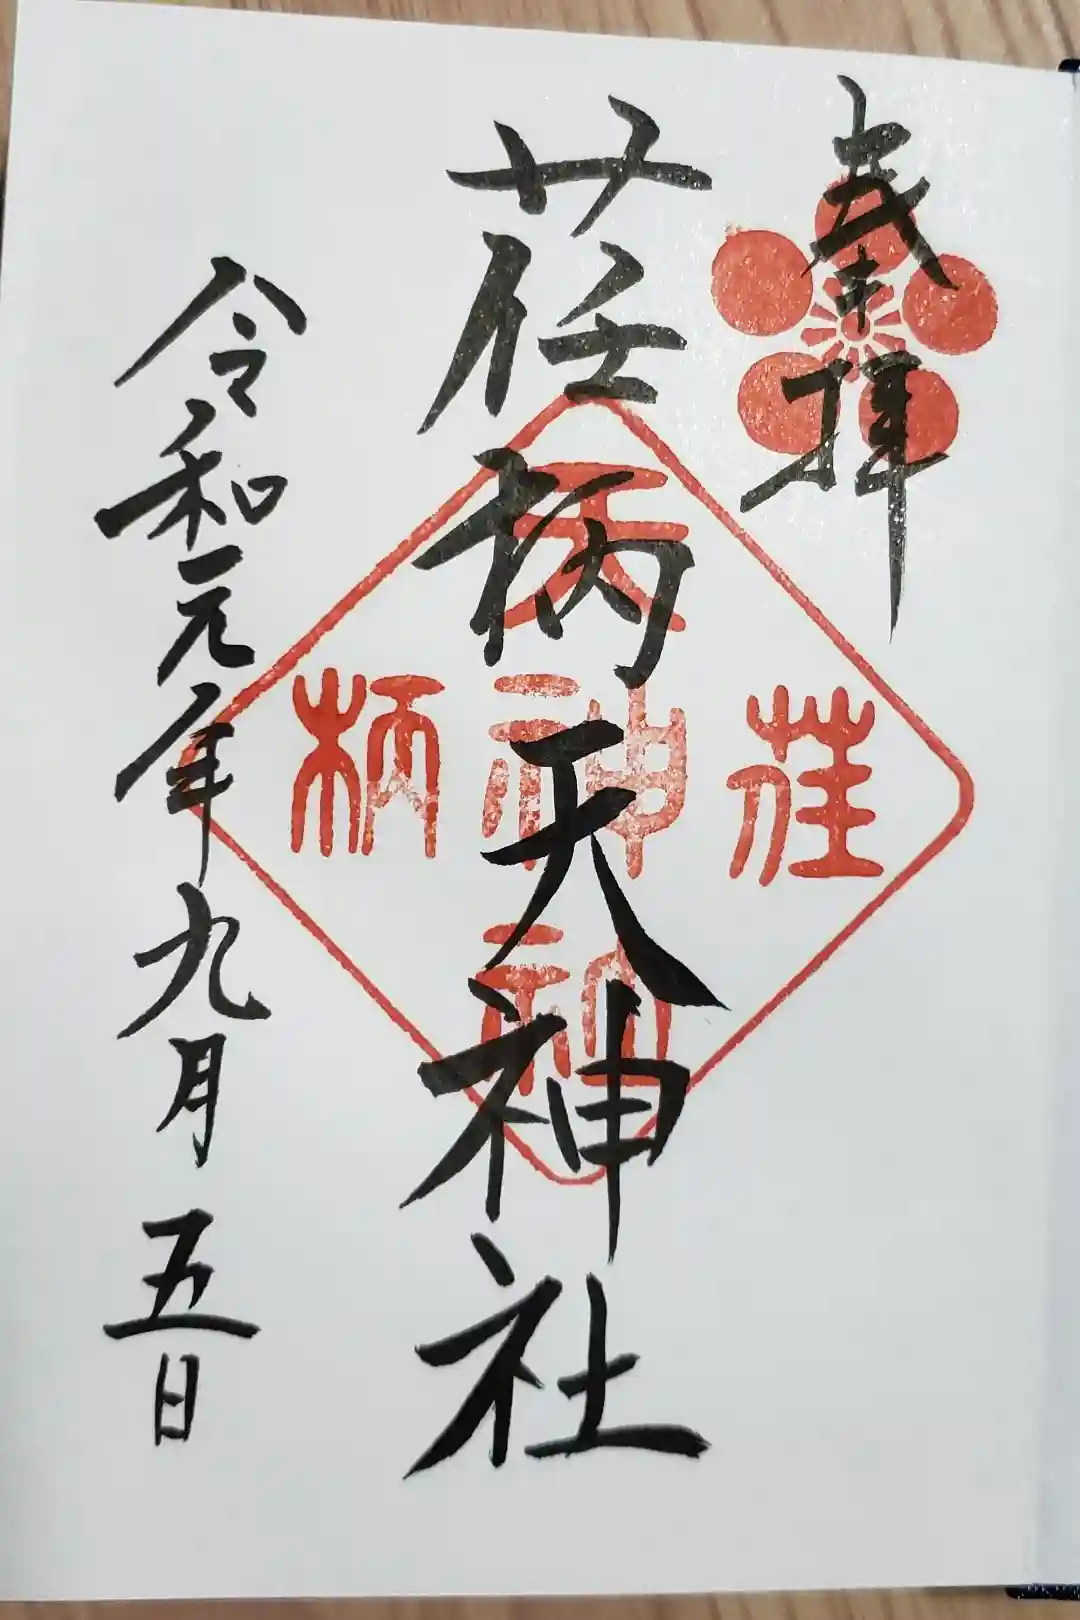 奉拝
荏柄天神社
令和元年九月五日
天
荏神柄
社